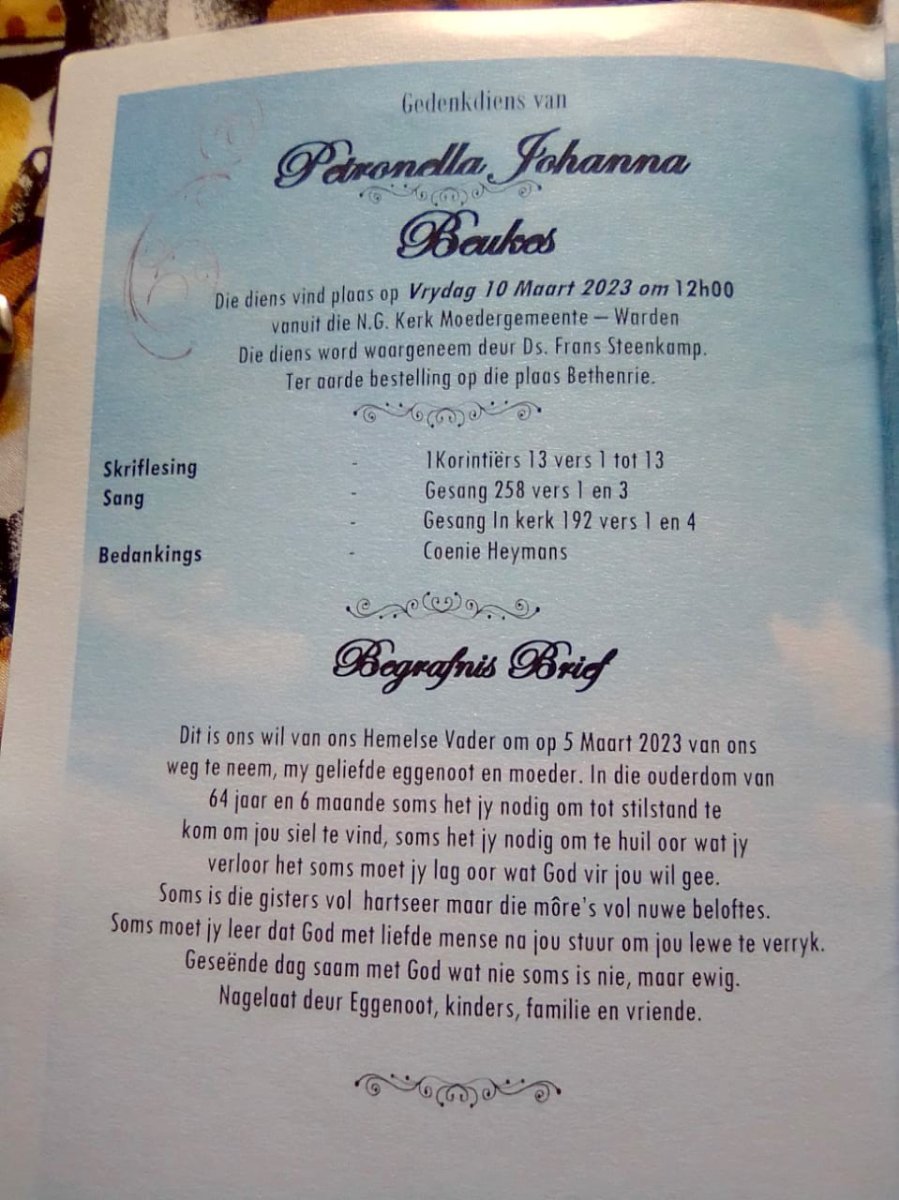 Gedenkdiens van
Petronella Johanna
Beukes
Die diens vind plaas op Vrydag 10 Maart 2023 om 12h00
vanuit die N.G. Kerk Moedergemeente – Warden
Die diens word waargeneem deur Ds. Frans Steenkamp.
Ter aarde bestelling op die plaas Bethenrie.
Skriflesing - 1Korintiërs 13 vers 1 tot 13
Sang - Gesang 258 vers 1 en 3
- Gesang In kerk 192 vers 1 en 4
Bedankings - Coenie Heymans
Begrafnis Brief
Dit is ons wil van ons Hemelse Vader om op 5 Maart 2023 van ons
weg te neem, my geliefde eggenoot en moeder. In die ouderdom van
64 jaar en 6 maande soms het jy nodig om tot stilstand te
kom om jou siel te vind, soms het jy nodig om te huil oor wat jy
verloor het soms moet jy lag oor wat God vir jou wil gee.
Soms is die gisters vol hartseer maar die môre's vol nuwe beloftes.
Soms moet jy leer dat God met liefde mense na jou stuur om jou lewe te verryk.
Geseënde dag saam met God wat nie soms is nie, maar ewig.
Nagelaat deur Eggenoot, kinders, familie en vriende.